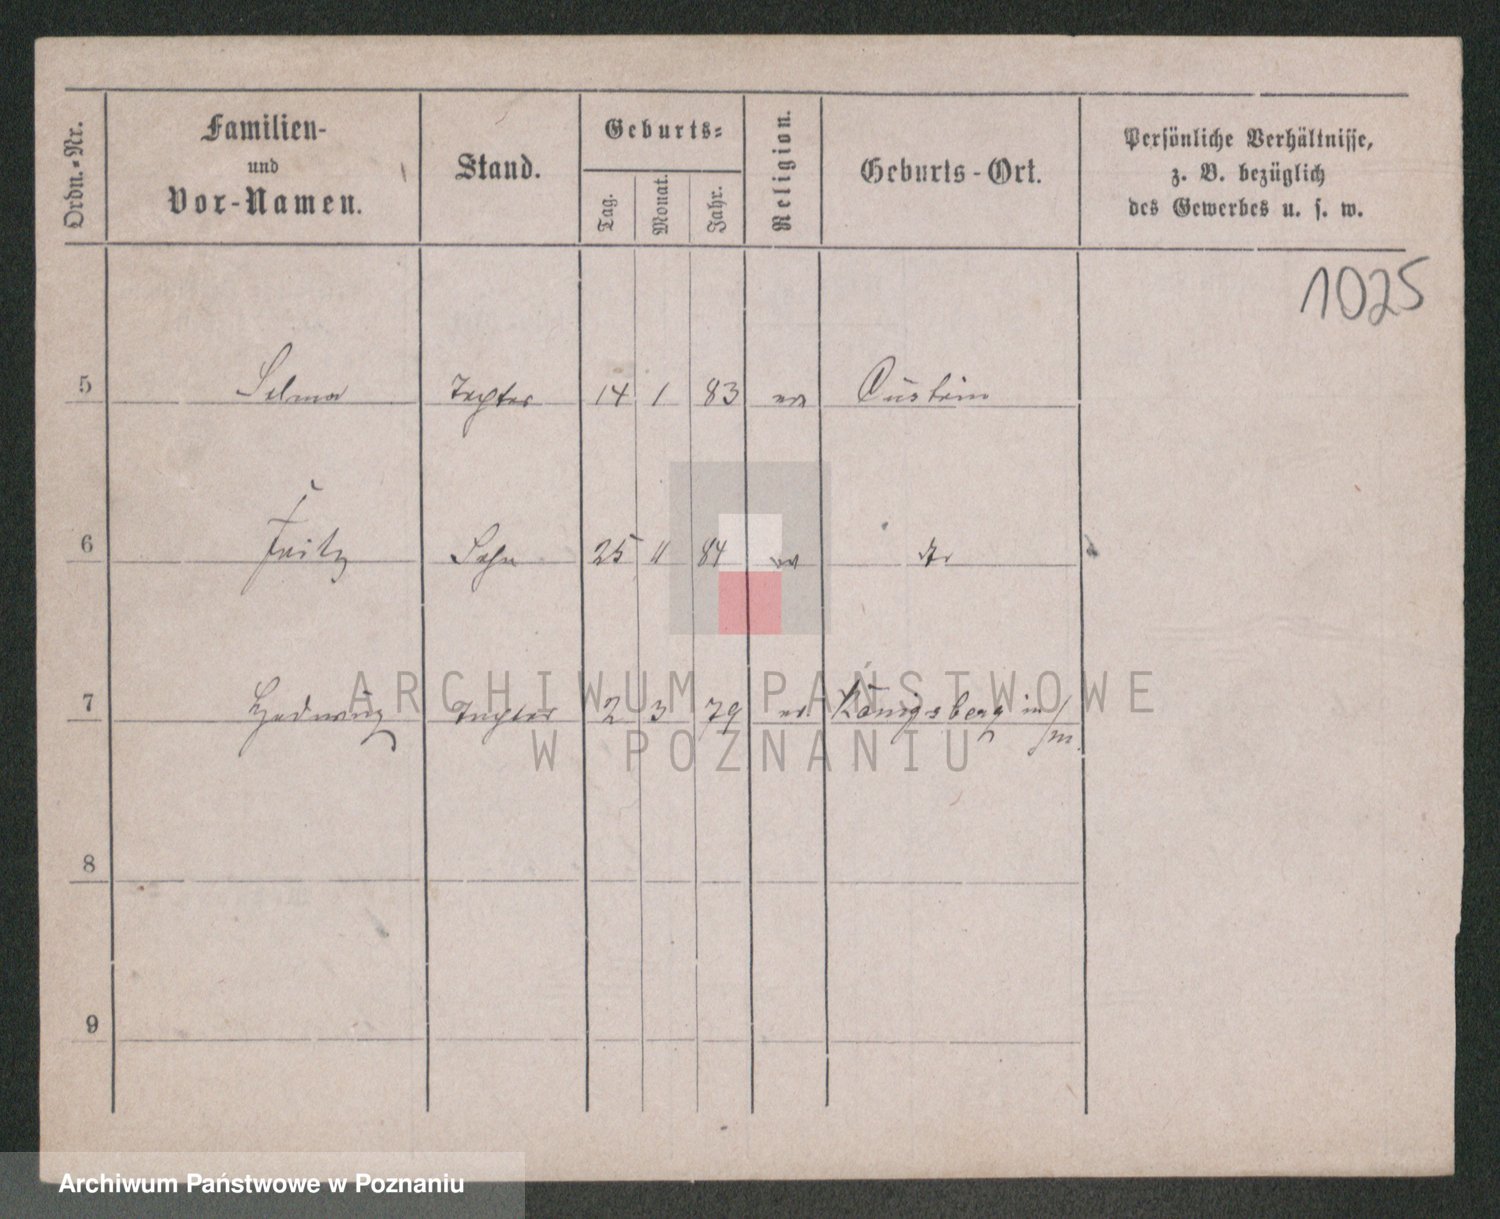 Ordn.-Nr.
Familien-
und
Vor-Namen.
Stand.
Geburts-
Tag.
Monat.
Jahr.
Religion.
Geburts-Ort.
Persönliche Verhältnisse,
z. B. bezüglich
des Gewerbes u. s. w.
1025
5 Selma Tochter 14 1 83 ev Cüstrin
6 Fritz Sohn 25 11 84 ev do
7 Hedwig Tochter 2 3 79 ev Königsberg in/M.
8
9
ARCHIWUM PAŃSTWOWE
W POZNANIU
Archiwum Państwowe w Poznaniu